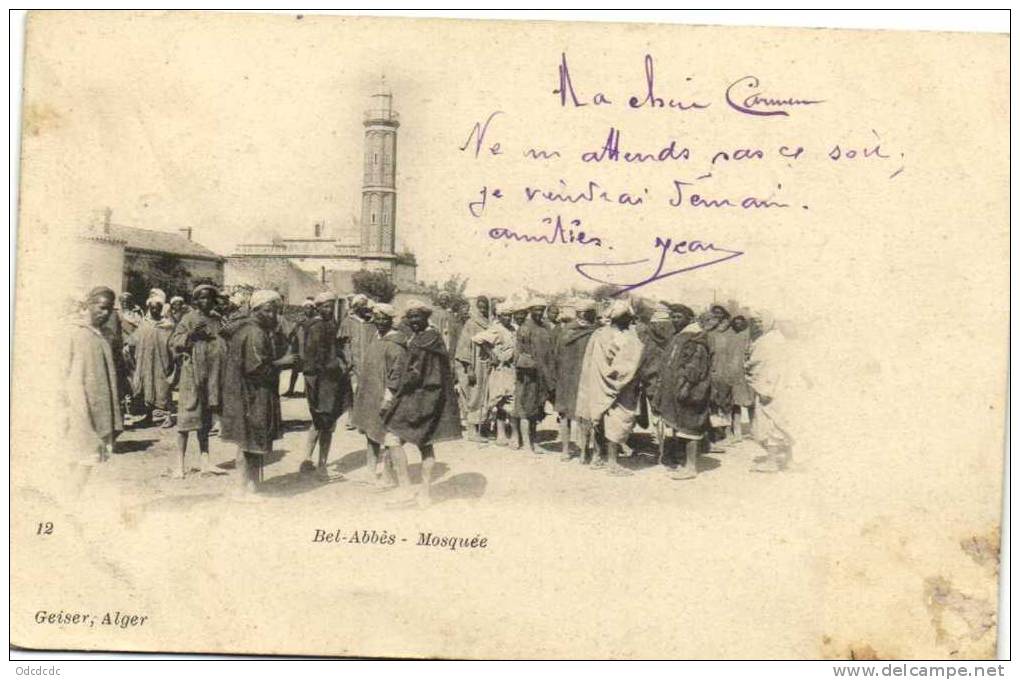 Ma chère Carmen
Ne m'attends pas ce soir,
je viendrai demain.
amitiés. Jean
12
Bel-Abbès - Mosquée
Geiser, Alger
Odcdcdc
www.delcampe.net